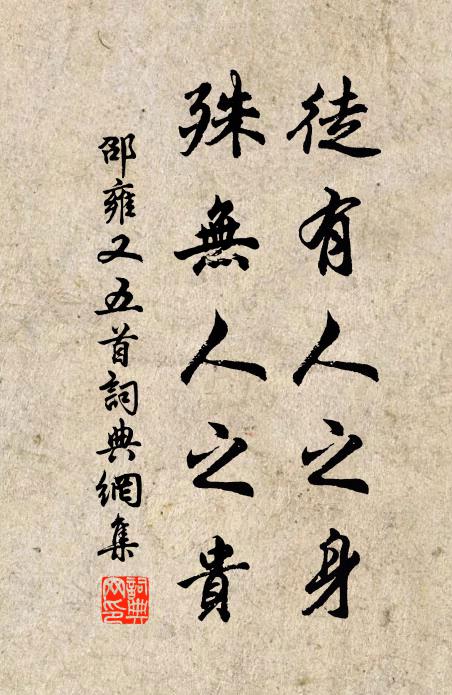 徒有人之身
殊無人之貴
邵雍又五首詞典網集
詞典網印